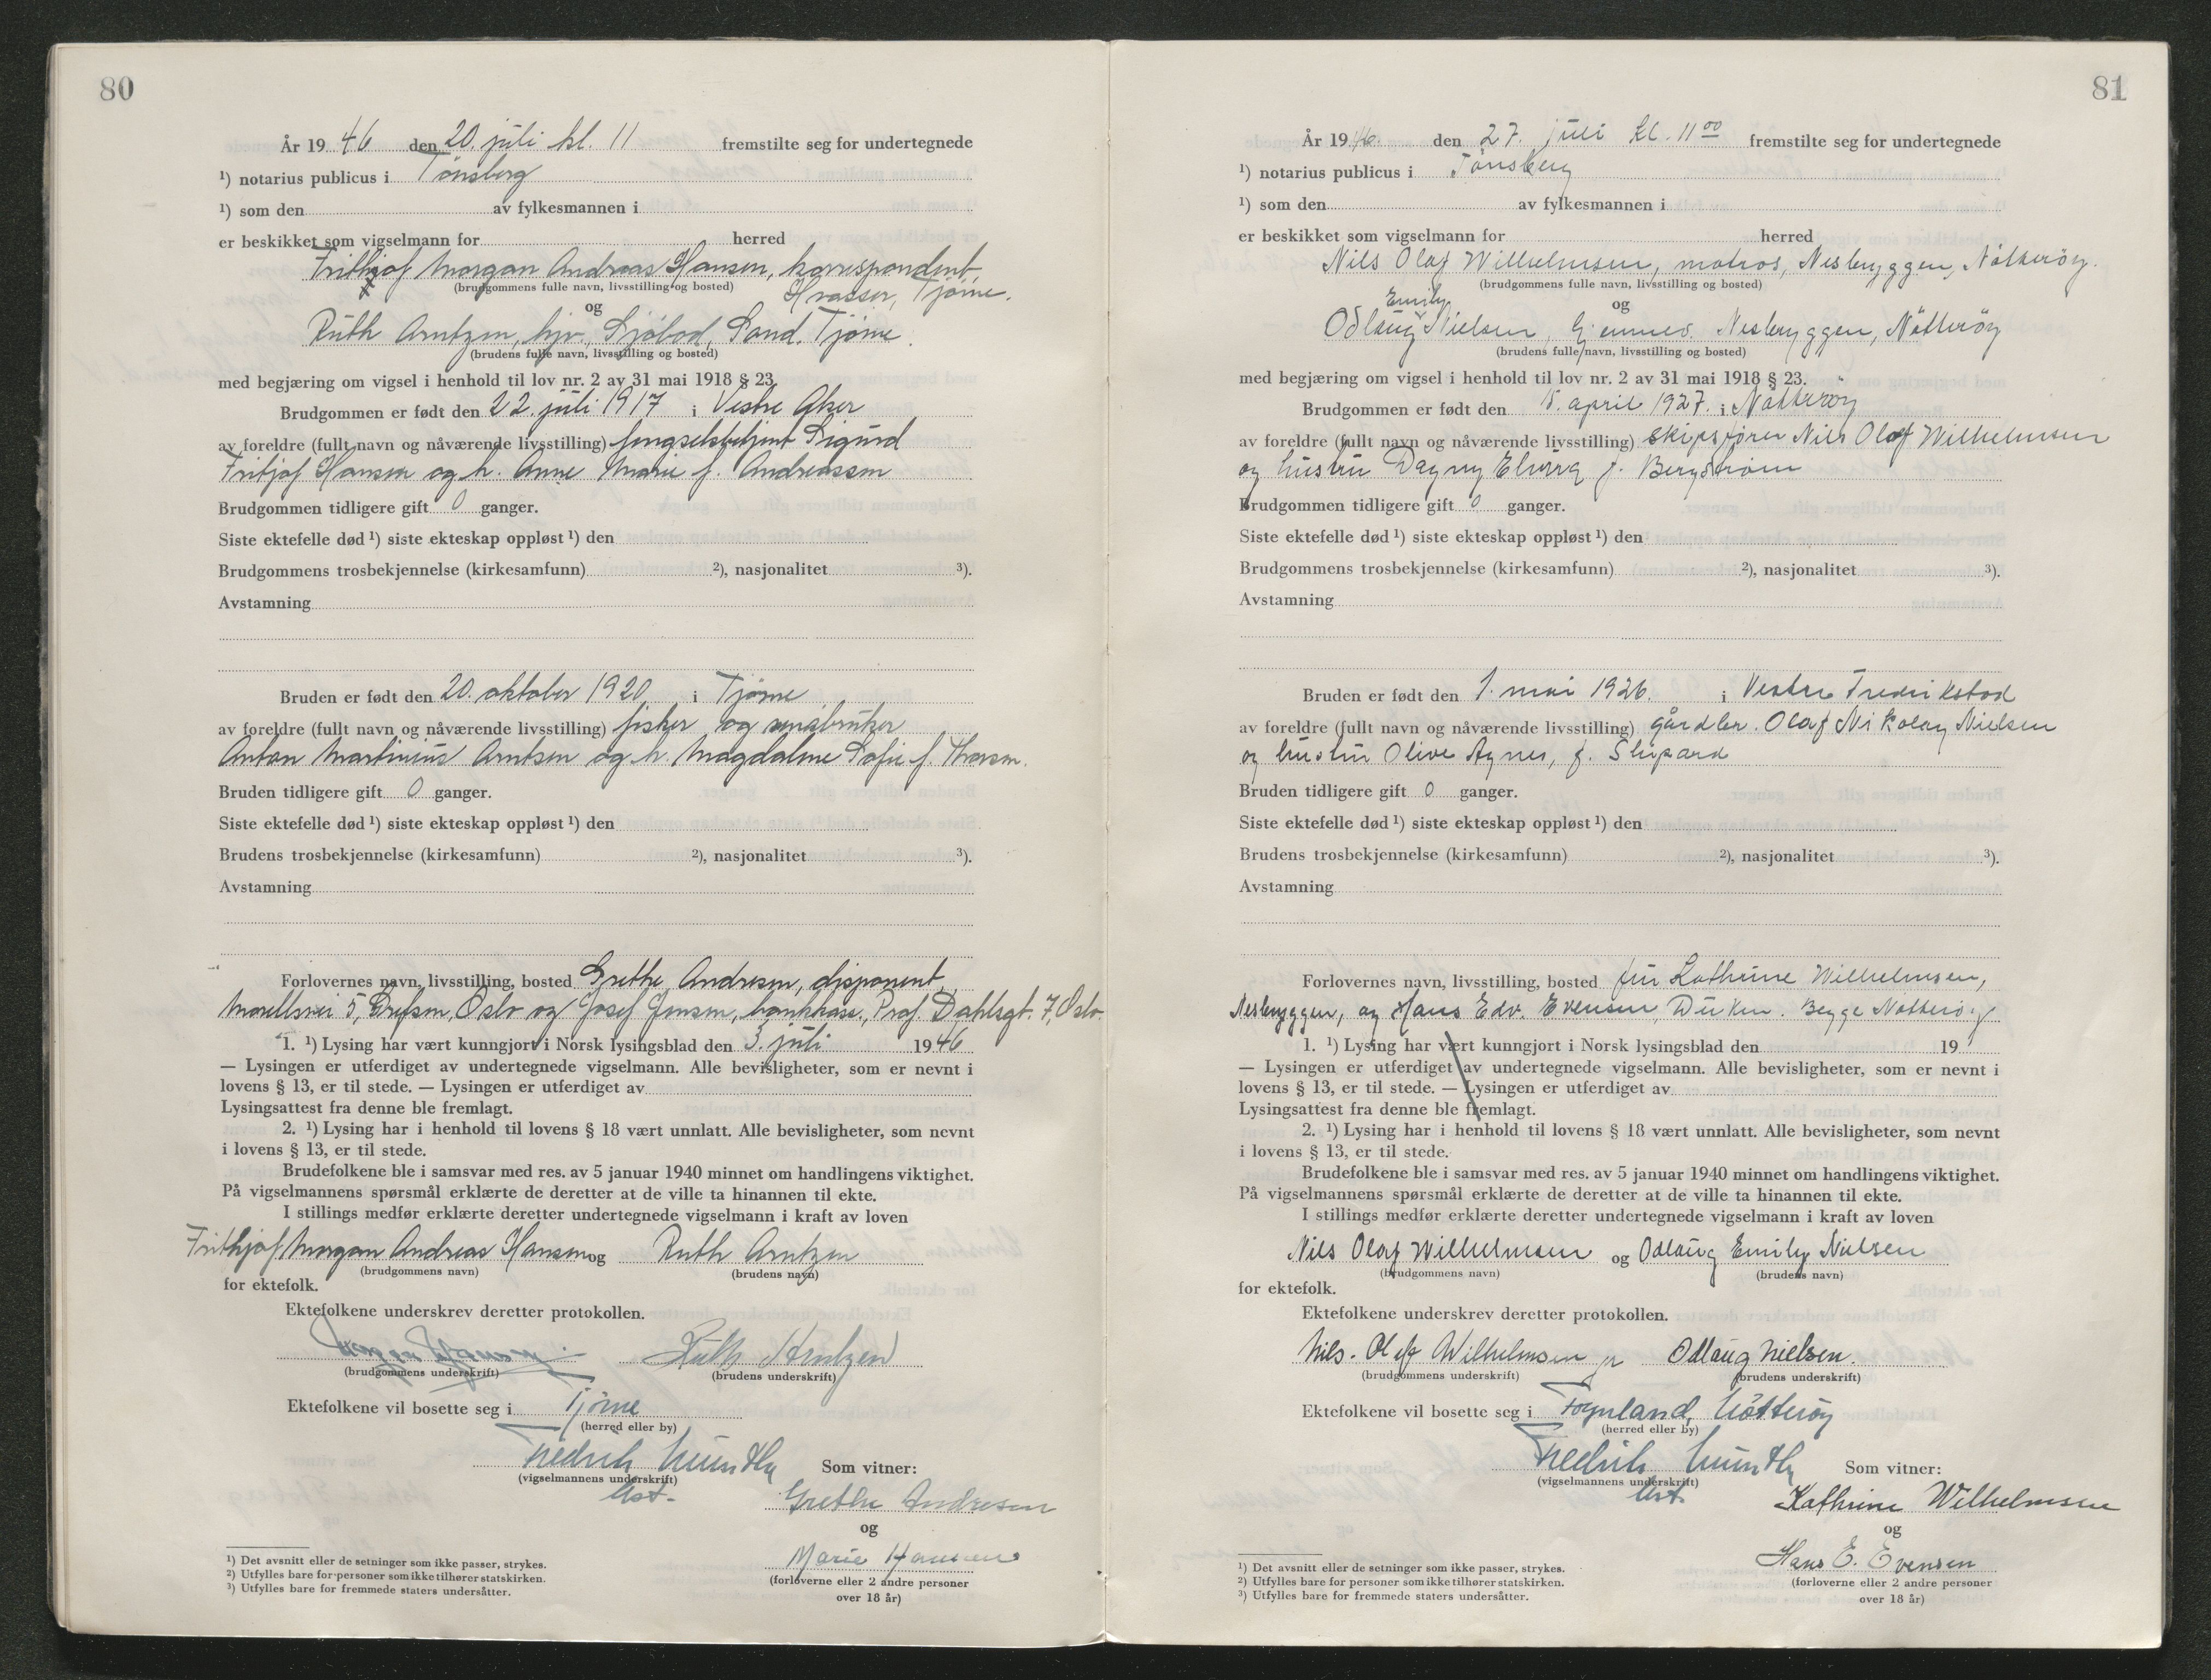 80
År 1946 den 20. juli kl. 11 fremstilte seg for undertegnede
¹) notarius publicus i Tønsberg
¹) som den av fylkesmannen i
er beskikket som vigselmann for herred
Frithjof Morgan Andreas Hansen, korrespondent,
(brudgommens fulle navn, livsstilling og bosted) Hvasser, Tjøme.
og
Ruth Arntzen, hjv., Sjøbod, Sand. Tjøme.
(brudens fulle navn, livsstilling og bosted)
med begjæring om vigsel i henhold til lov nr. 2 av 31 mai 1918 § 23.
Brudgommen er født den 22. juli 1917 i Vestre Aker
av foreldre (fullt navn og nåværende livsstilling) fengselsbetjent Sigurd
Fritjof Hansen og h. Anne Marie f. Andreassen
Brudgommen tidligere gift 0 ganger.
Siste ektefelle død ¹) siste ekteskap oppløst ¹) den
Brudgommens trosbekjennelse (kirkesamfunn) ²), nasjonalitet ³).
Avstamning
Bruden er født den 20. oktober 1920 i Tjøme
av foreldre (fullt navn og nåværende livsstilling) fisker og småbruker
Anton Martinius Arntsen og h. Magdalene Sofie f. Thoresen.
Bruden tidligere gift 0 ganger.
Siste ektefelle død ¹) siste ekteskap oppløst ¹) den
Brudens trosbekjennelse (kirkesamfunn) ²), nasjonalitet ³).
Avstamning
Forlovernes navn, livsstilling, bosted Grethe Andresen, disponent,
Morellsvei 5, Grefsen, Oslo og Josef Jensen, bankkass., Prof. Dahlsgt. 7, Oslo.
1. ¹) Lysing har vært kunngjort i Norsk lysingsblad den 3. juli 1946
— Lysingen er utferdiget av undertegnede vigselmann. Alle bevisligheter, som er nevnt i
lovens § 13, er til stede. — Lysingen er utferdiget av
Lysingsattest fra denne ble fremlagt.
2. ¹) Lysing har i henhold til lovens § 18 vært unnlatt. Alle bevisligheter, som nevnt
i lovens § 13, er til stede.
Brudefolkene ble i samsvar med res. av 5 januar 1940 minnet om handlingens viktighet.
På vigselmannens spørsmål erklærte de deretter at de ville ta hinannen til ekte.
I stillings medfør erklærte deretter undertegnede vigselmann i kraft av loven
Frithjof Morgan Andreas Hansen og Ruth Arntzen
(brudgommens navn) (brudens navn)
for ektefolk.
Ektefolkene underskrev deretter protokollen.
Morgan Hansen. Ruth Arntzen
(brudgommens underskrift) (brudens underskrift)
Ektefolkene vil bosette seg i Tjøme
(herred eller by)
Fredrik Som vitner:
(vigselmannens underskrift)
Ast. Grethe Andresen
og
Marie Hansen
(forloverne eller 2 andre personer
over 18 år)
¹) Det avsnitt eller de setninger som ikke passer, strykes.
²) Utfylles bare for personer som ikke tilhører statskirken.
³) Utfylles bare for fremmede staters undersåtter.
81
År 1946. den 27. juli kl. 11⁰⁰ fremstilte seg for undertegnede
¹) notarius publicus i Tønsberg
¹) som den av fylkesmannen i
er beskikket som vigselmann for herred
Nils Olaf Wilhelmsen, matros, Nesbryggen, Nøtterøy.
(brudgommens fulle navn, livsstilling og bosted)
og
Emily
Odlaug Nielsen, hjemmev. Nesbryggen, Nøtterøy
(brudens fulle navn, livsstilling og bosted)
med begjæring om vigsel i henhold til lov nr. 2 av 31 mai 1918 § 23.
Brudgommen er født den april 1927. i Nøtterøy
av foreldre (fullt navn og nåværende livsstilling) skipsfører Nils Olaf Wilhelmsen
og hustru Dagny Elvira f. Bergstrøm
Brudgommen tidligere gift 0 ganger.
Siste ektefelle død ¹) siste ekteskap oppløst ¹) den
Brudgommens trosbekjennelse (kirkesamfunn) ²), nasjonalitet ³).
Avstamning
Bruden er født den 1. mai 1926. i Vestre Fredrikstad
av foreldre (fullt navn og nåværende livsstilling) gårdbr. Olaf Nikolay Nielsen
og hustru Olive Agnes, f. Shipard
Bruden tidligere gift 0 ganger.
Siste ektefelle død ¹) siste ekteskap oppløst ¹) den
Brudens trosbekjennelse (kirkesamfunn) ²), nasjonalitet ³).
Avstamning
Forlovernes navn, livsstilling, bosted fru Kathrine Wilhelmsen,
Nesbryggen, og Hans Edv. Evensen, Duken. Begge Nøtterøy
1. ¹) Lysing har vært kunngjort i Norsk lysingsblad den 19
— Lysingen er utferdiget av undertegnede vigselmann. Alle bevisligheter, som er nevnt i
lovens § 13, er til stede. — Lysingen er utferdiget av
Lysingsattest fra denne ble fremlagt.
2. ¹) Lysing har i henhold til lovens § 18 vært unnlatt. Alle bevisligheter, som nevnt
i lovens § 13, er til stede.
Brudefolkene ble i samsvar med res. av 5 januar 1940 minnet om handlingens viktighet.
På vigselmannens spørsmål erklærte de deretter at de ville ta hinannen til ekte.
I stillings medfør erklærte deretter undertegnede vigselmann i kraft av loven
Nils Olaf Wilhelmsen og Odlaug Emily Nielsen
(brudgommens navn) (brudens navn)
for ektefolk.
Ektefolkene underskrev deretter protokollen.
Nils. Olaf Wilhelmsen jr Odlaug Nielsen.
(brudgommens underskrift) (brudens underskrift)
Ektefolkene vil bosette seg i Føynland, Nøtterøy
(herred eller by)
Fredrik Som vitner:
(vigselmannens underskrift)
Ast. Kathrine Wilhelmsen
og
Hans E. Evensen
(forloverne eller 2 andre personer
over 18 år)
¹) Det avsnitt eller de setninger som ikke passer, strykes.
²) Utfylles bare for personer som ikke tilhører statskirken.
³) Utfylles bare for fremmede staters undersåtter.